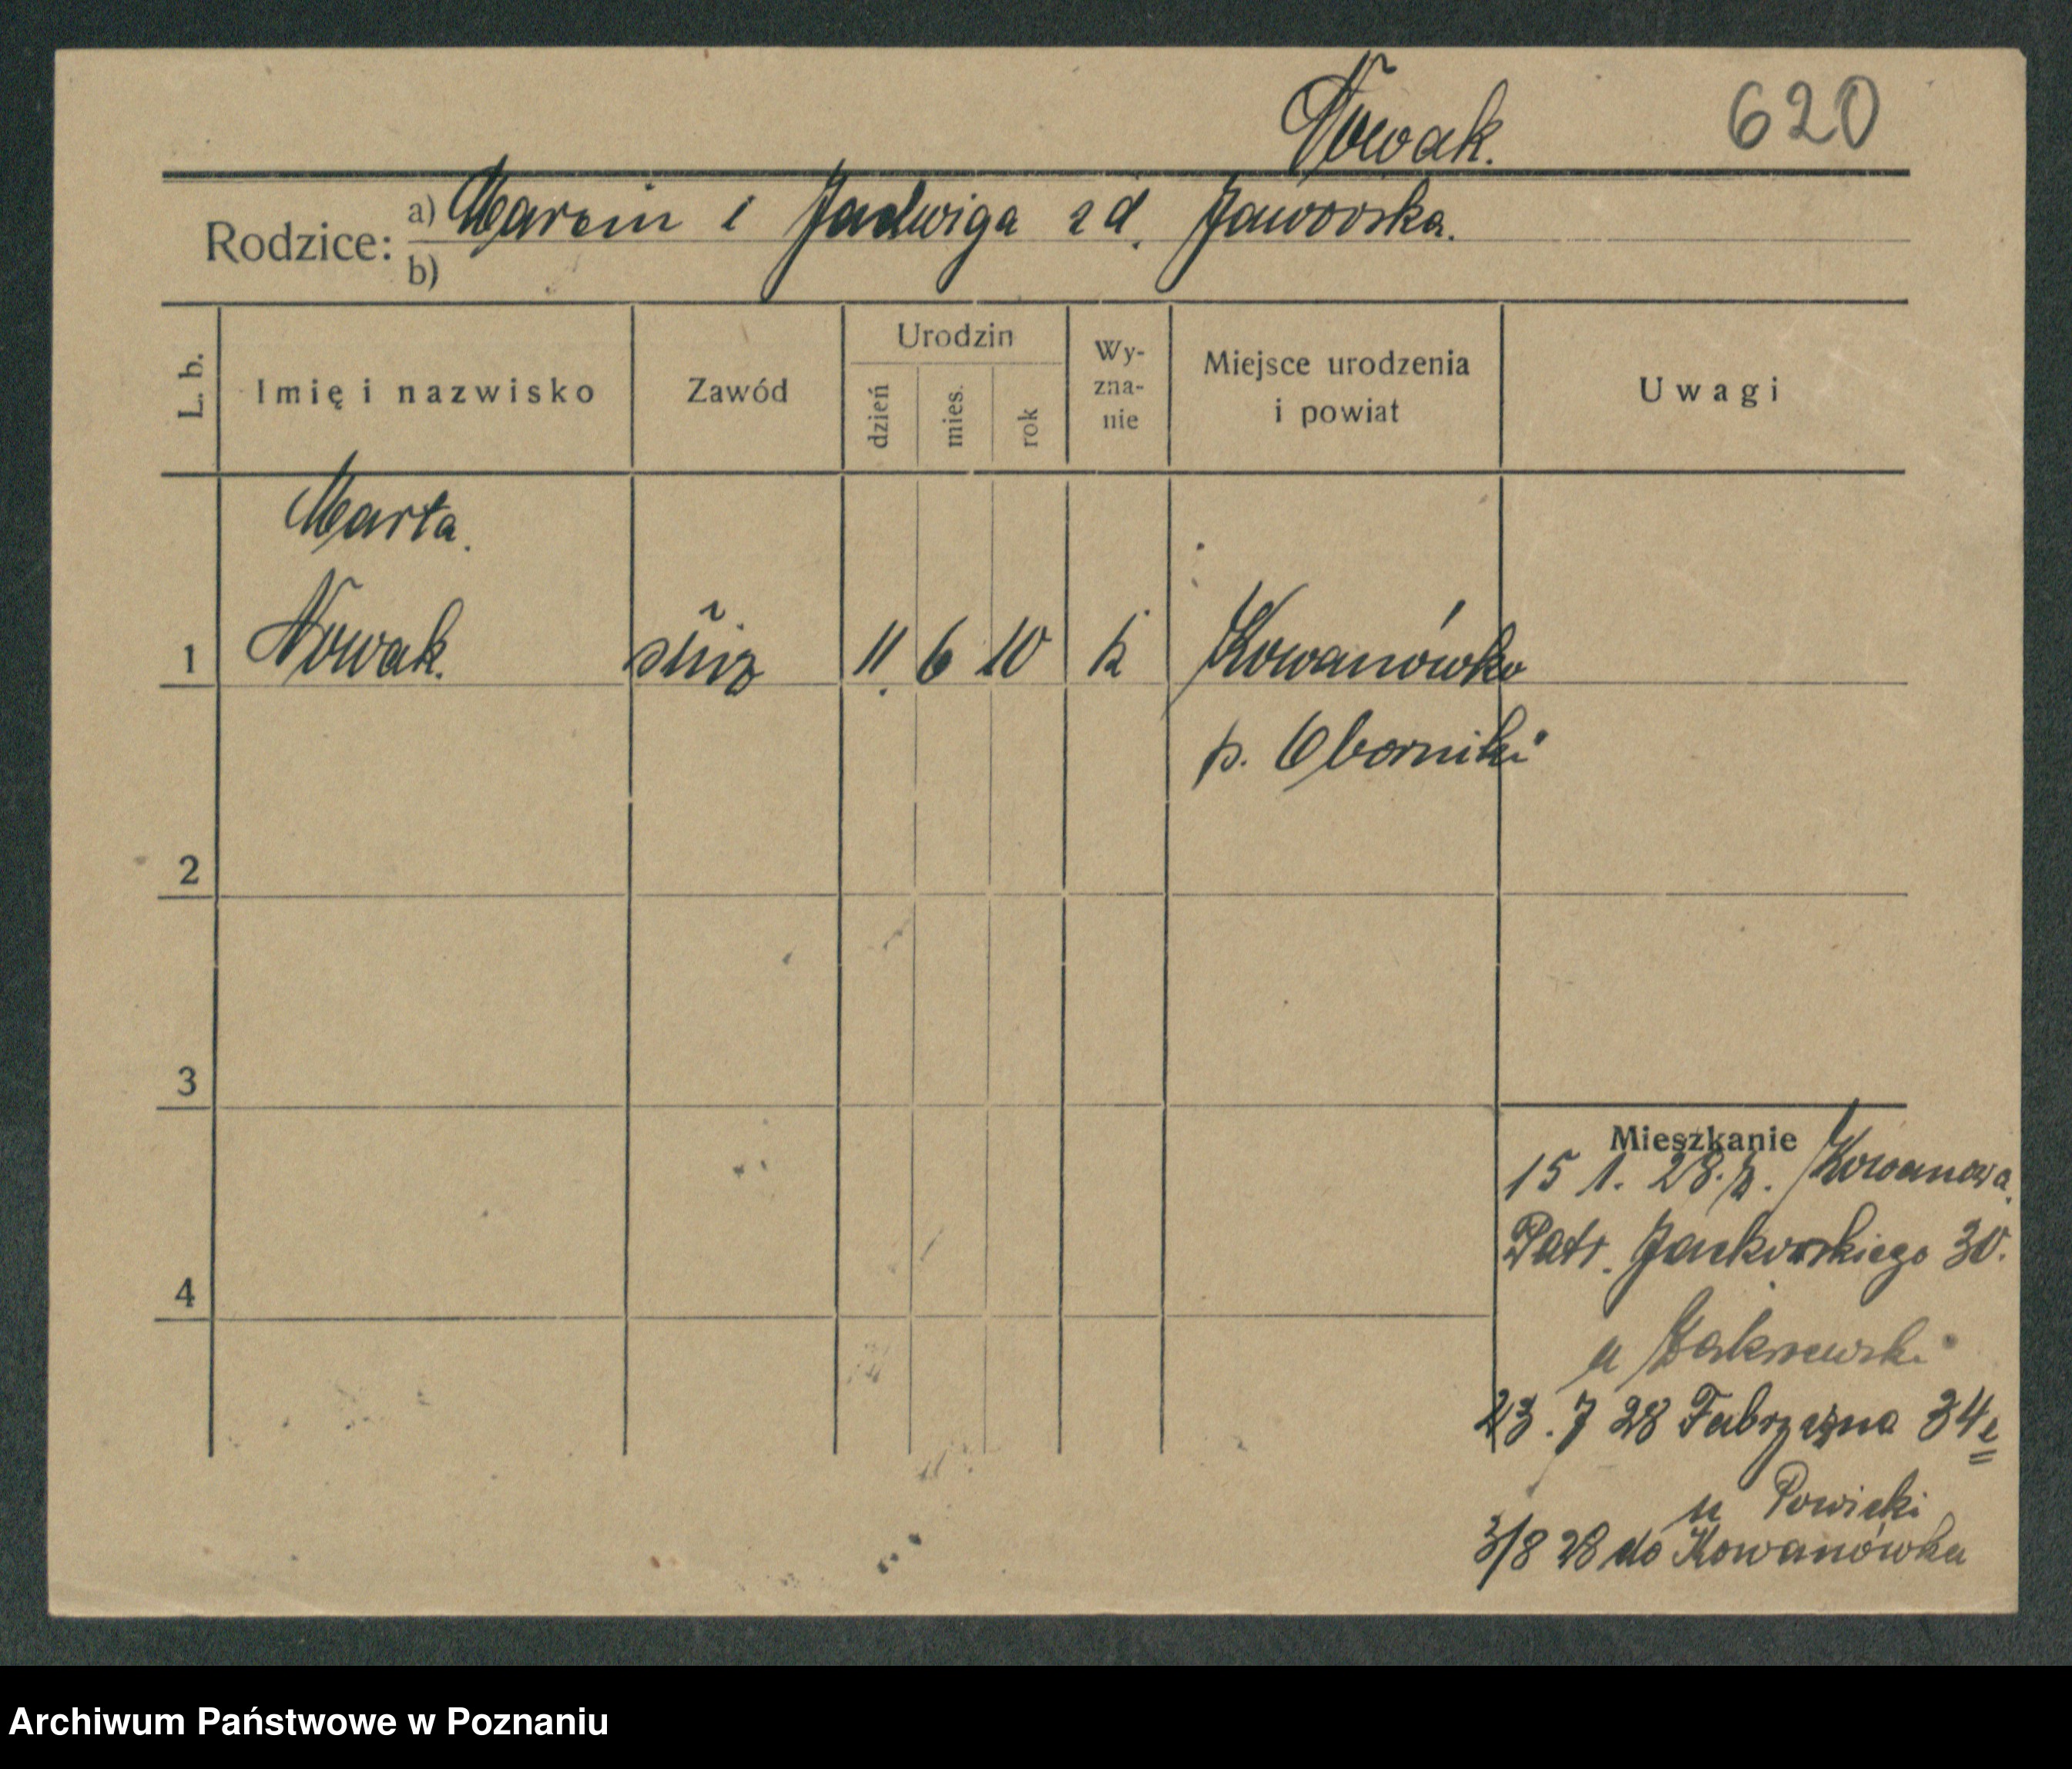 Nowak. 620
Rodzice: a) Marcin i Jadwiga z d. Jaworska.
b)
L. b. Imię i nazwisko Zawód Urodzin dzień mies. rok Wy-zna-nie Miejsce urodzenia i powiat Uwagi
Marta.
1 Nowak. służ 11 6 10 k Kowanówko
p. Oborniki
2
3
Mieszkanie
15 1. 28. z. Kowanowa.
Patr. Jackowskiego 30.
4
u Zakrzewski
23. 7 28 Fabryczna 34
u Powicki
3/8 28 do Kowanówka
Archiwum Państwowe w Poznaniu